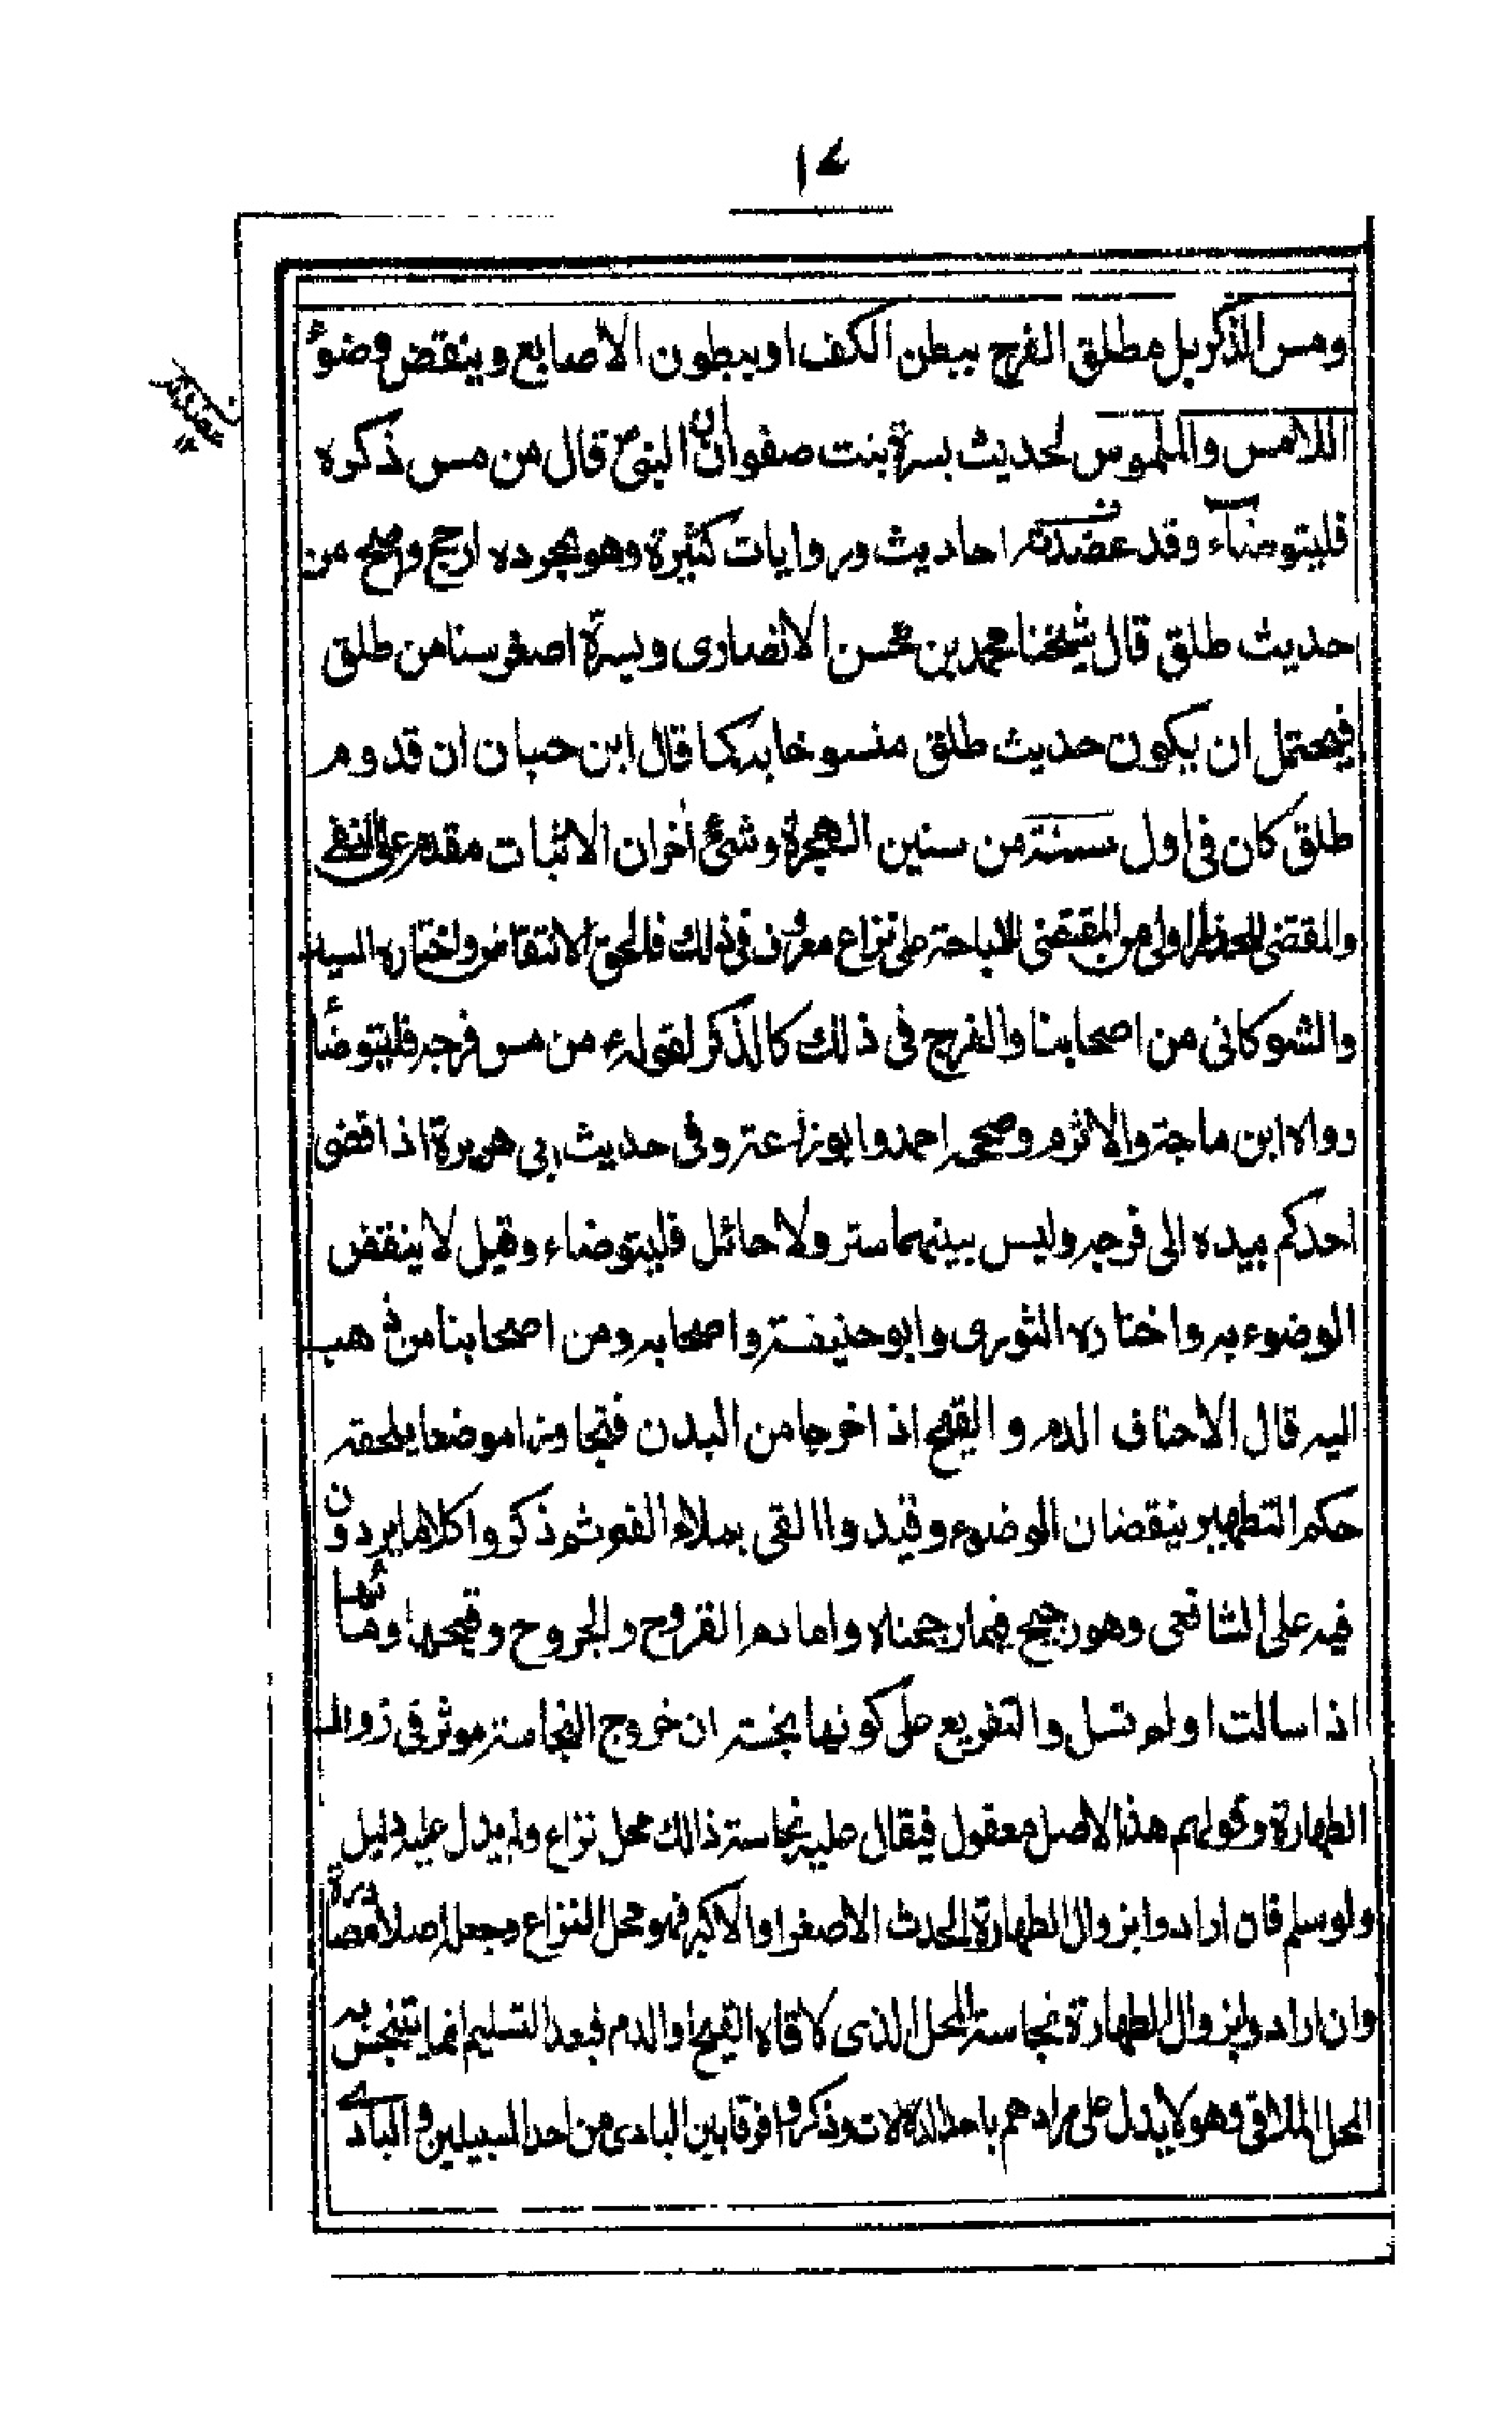 ١٧
ومس الذكر بل مطلق الفرج ببطن الكف او ببطون الاصابع وينقض وضوء
اللامس والملموس لحديث بسرة بنت صفوان ان النبيؐ قال من مس ذكره
فليتوضاء وقد عضدته احاديث وروايات كثيرة وهو بمجرده ارجح واصح من
حديث طلق قال شيخنا محمد بن محسن الانصارى وبسرة اصغر سنا من طلق
فيحتمل ان يكون حديث طلق منسوخا به كما قال ابن حبان ان قدوم
طلق كان فى اول سنة من سنين الهجرة وشئ أخر ان الاثبات مقدم على النفى
والمقتضى للحظر اولى من المقتضى للاباحة على نزاع معروف فى ذلك فالحق الانتقاض واختاره السيد
والشوكانى من اصحابنا والفرج فى ذالك كالذكر لقولهؑ من مس فرجه فليتوضأ
رواه ابن ماجة والاثرم وصححه احمد وابو زرعة وفى حديث ابى هريرة اذا افضى
احدكم بيده الى فرجه وليس بينهما ستر ولا حائل فليتوضاء وقيل لا ينقض
الوضوء به واختاره الثورى وابو حنيفة واصحابه ومن اصحابنا من ذهب
اليه قال الاحناف الدم والقيح اذا خرجا من البدن فتجاوزا موضعا يلحقه
حكم التطهير ينقضان الوضوء وقيدوا القى بملاء الفم ثم ذكروا كلاما يردون
فيه على الشافعى وهو رجيح فيما رجحناه واما دم القروح والجروح وقيحها وماءها
اذا سالت او لم تسل والتفريع على كونها نجسة ان خروج النجاسة موثر فى زوال
الطهارة وقولهم هذا الاصل معقول فيقال عليه نجاسة ذالك محل نزاع ولم يدل عليه دليل
ولو سلم فان ارادوا بزوال الطهارة الحدث الاصغر او الاكبر فهو محل النزاع وجعله اصلا مصادرة
وان ارادوا بزوال الطهارة نجاسة المحل الذى لاقاه القيح او الدم فبعد التسليم انما يتنجس به
المحل الملاقى وهو لا يدل على مرادهم باحد الدلالات وذكروا فرقا بين البادى من احد السبيلين والبادى